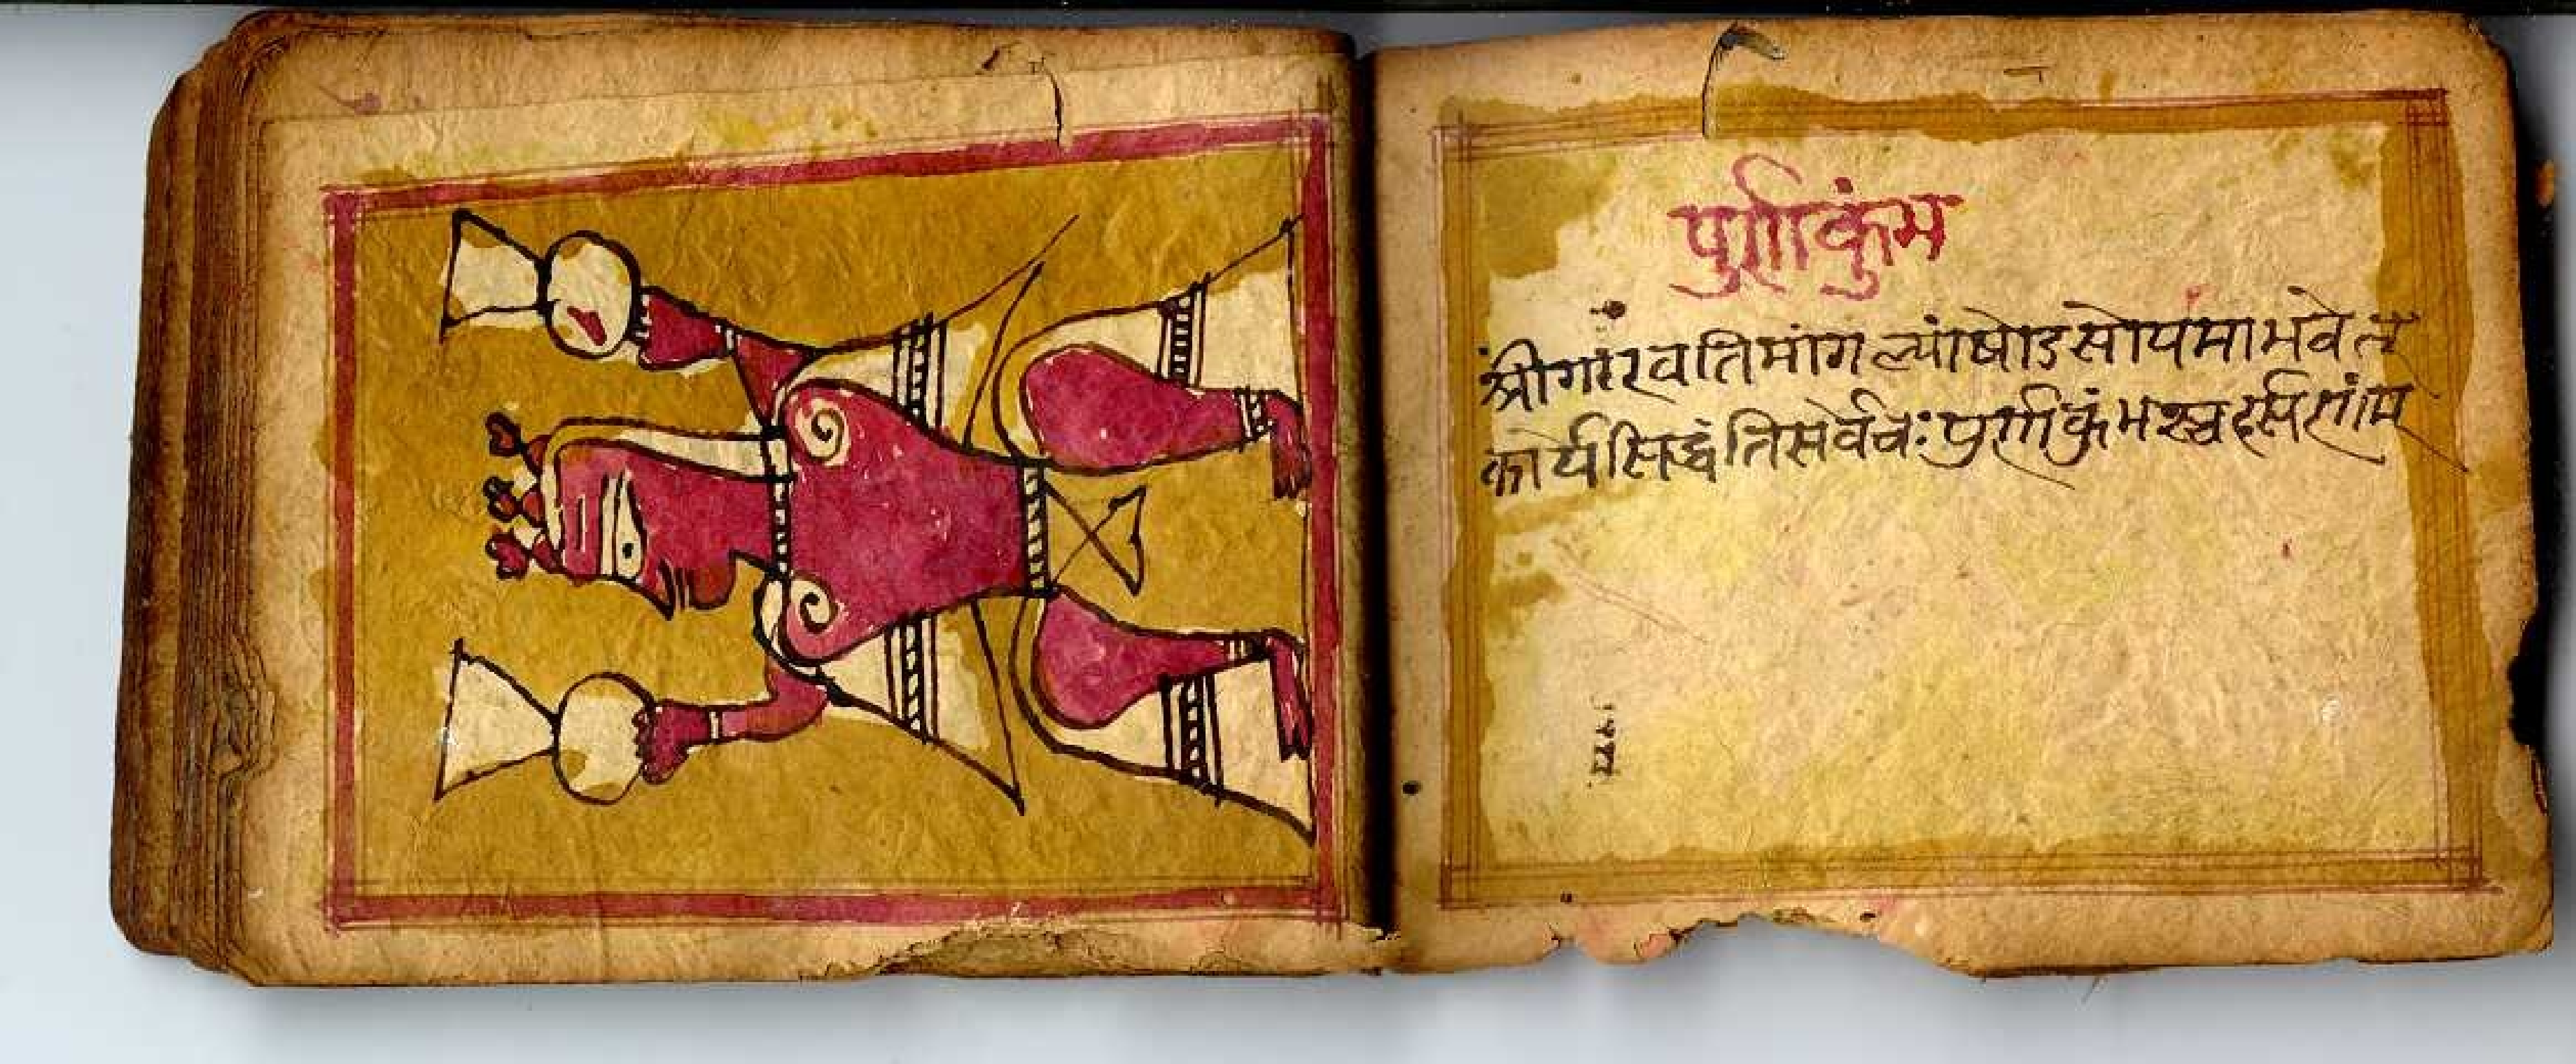 पुर्णकुंभ
श्रीगारवतिमांगल्यांषोडसोपमाभवेत्
कार्यसिद्धंतिसर्वेवः पुर्णकुंभस्व